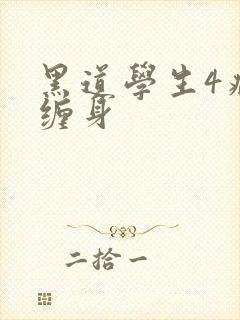 黑道學生4
缠身
二拾一